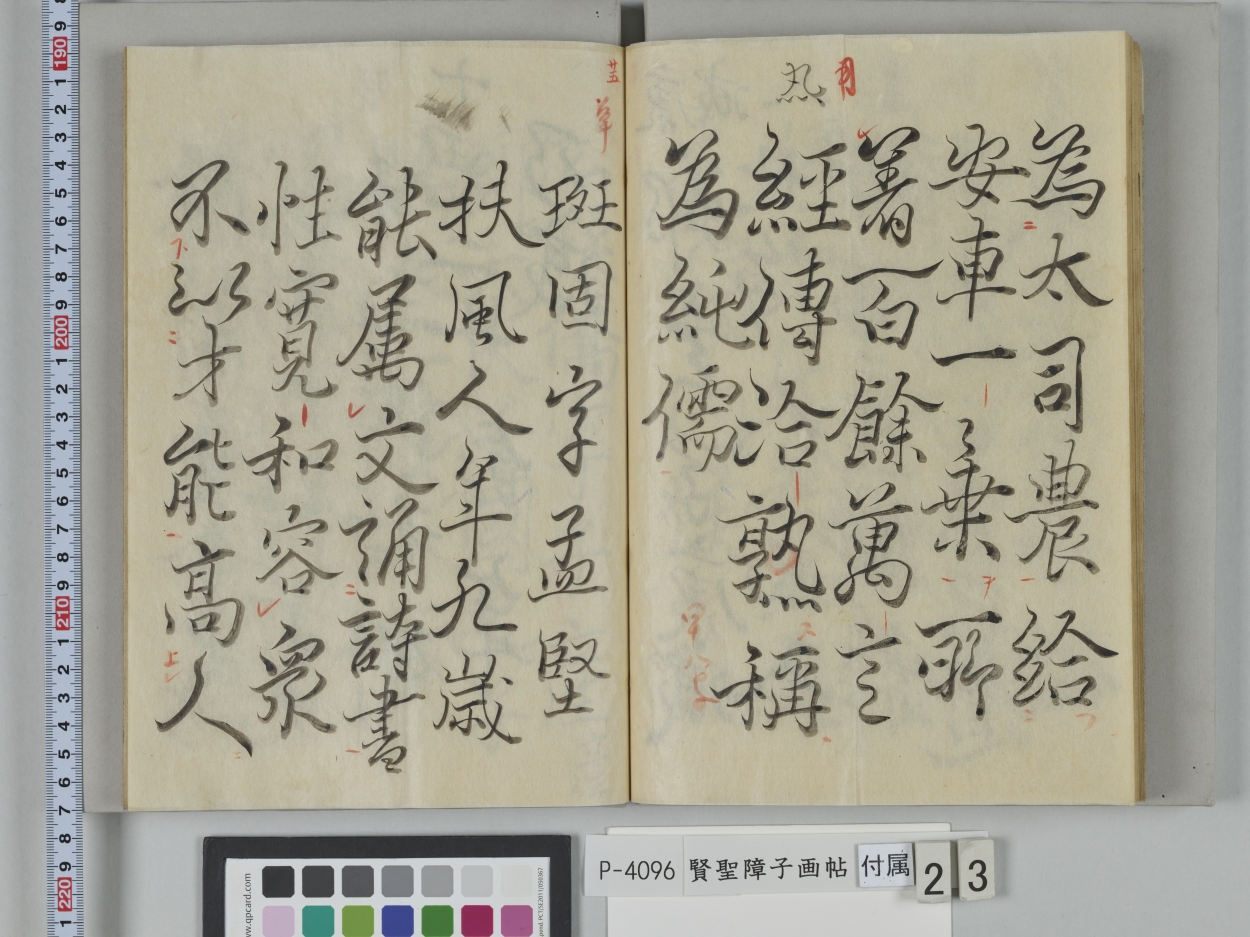 為太司農給
安車一乗所
著百餘萬言
經傳洽熟稱
為純儒
班固字孟堅
扶風人年九歳
能属文誦詩書
性寛和容衆
不以才能高人
P-4096 賢聖障子画帖 付属 2 3